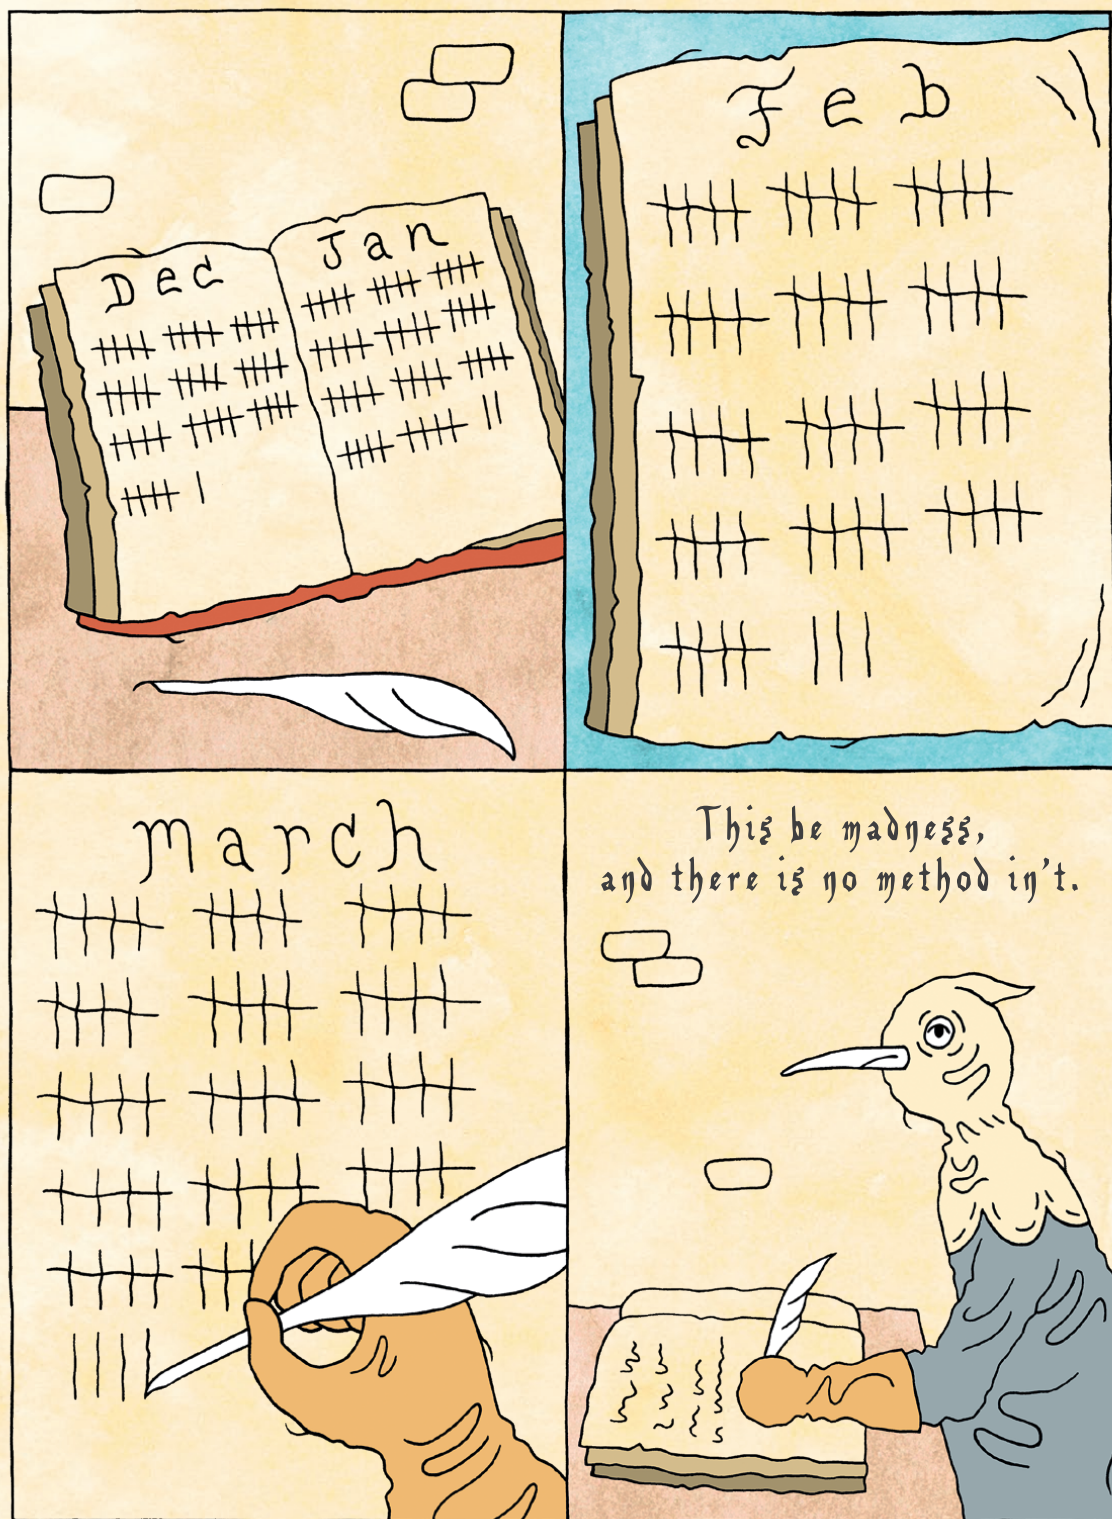 Dec
Jan
Feb
March
This be madness,
and there is no method in't.